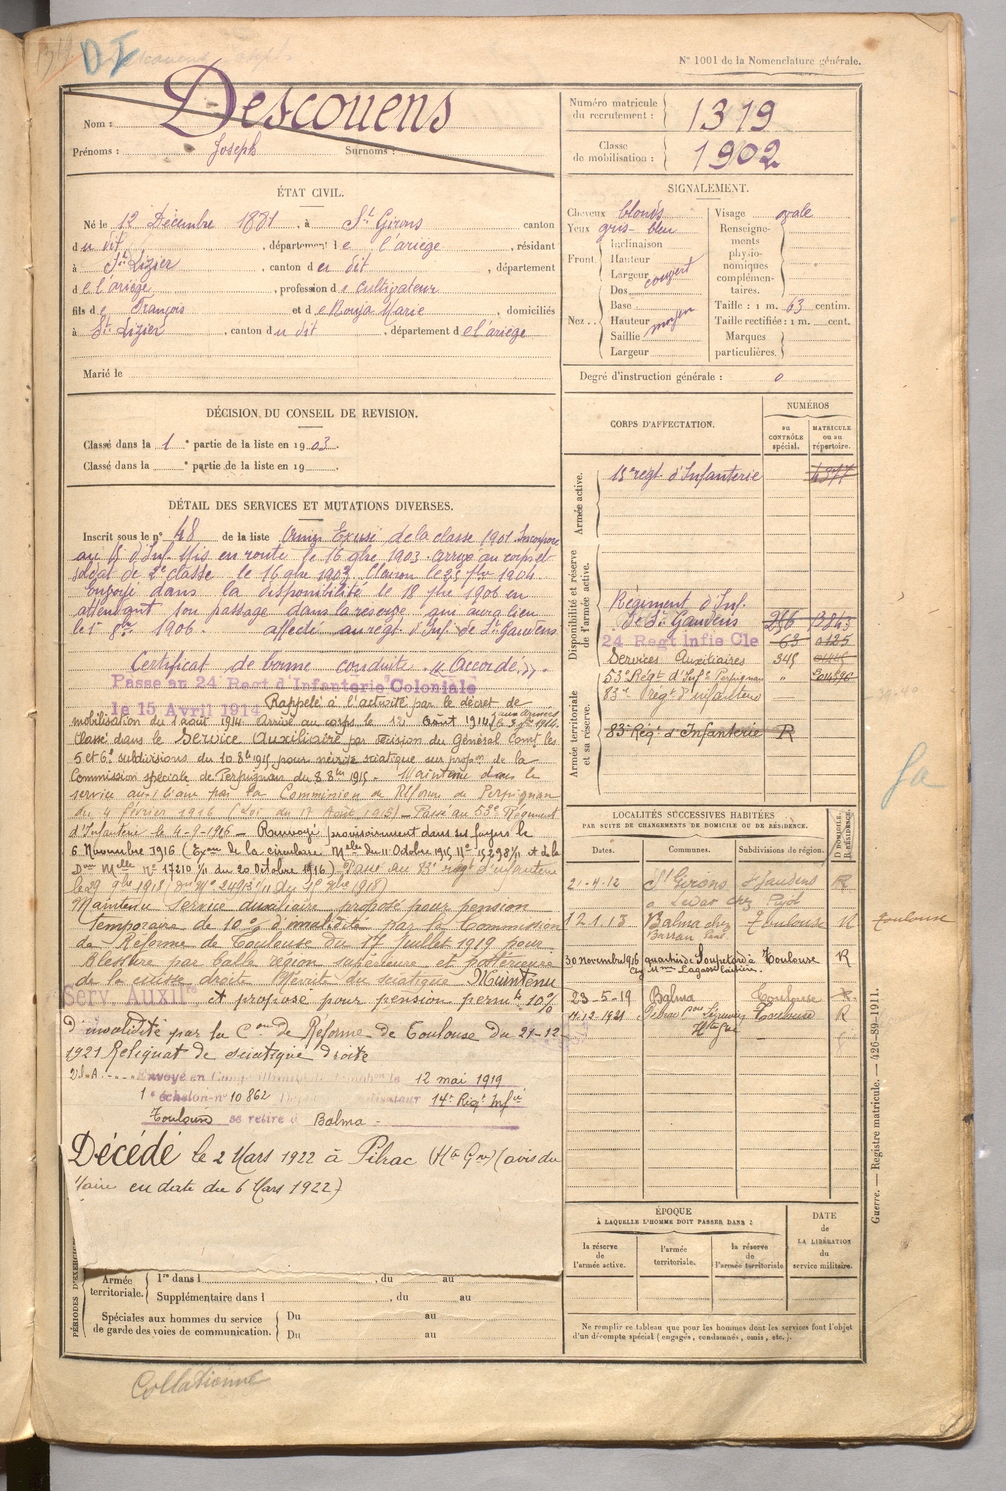 D I
N° 1001 de la Nomenclature générale.
Nom : Descouens
Prénoms : Joseph Surnoms :
Numéro matricule du recrutement : 1319
Classe de mobilisation : 1902
ÉTAT CIVIL.
Né le 12 Décembre 1881, à St Girons canton
du dit, département de l'ariège, résidant
à St Lizier, canton du dit, département
de l'ariège, profession de cultivateur
fils de François et de Rouja Marie, domiciliés
à St Lizier, canton du dit, département de l'ariège
Marié le
SIGNALEMENT.
Cheveux blonds
Yeux gris-bleu
Front Inclinaison
Hauteur
Largeur couvert
Nez Dos
Base
Hauteur moyen
Saillie
Largeur
Visage ovale
Renseignements physionomiques complémentaires.
Taille : 1 m. 63 centim.
Taille rectifiée : 1 m. cent.
Marques particulières.
Degré d'instruction générale : 0
DÉCISION DU CONSEIL DE REVISION.
Classé dans la 1e partie de la liste en 1903.
Classé dans la e partie de la liste en 19 .
DÉTAIL DES SERVICES ET MUTATIONS DIVERSES.
Inscrit sous le n° 48 de la liste Omis Excusé de la classe 1901 Incorporé
au d'Inf. Mis en route le 16 9bre 1903. Arrivé au corps et
soldat de 2e classe le 16 9bre 1903. Clairon le 25 1904.
Envoyé dans la disponibilité le 18 1906 en
attendant son passage dans la reserve qui aura lieu
le 1er 1906. affecté au regt d'Inf de St Gaudens
Certificat de bonne conduite "Accordé"
Passé au 24 Regt d'Infanterie Coloniale
le 15 Avril 1914 Rappelé à l'activité par le décret de
mobilisation du 1 août 1914. Arrivé au corps le 12 Août 1914
Classé dans le Service Auxiliaire par décision du Général Comt les
5 et 6e subdivisions du 10 8b 1915 pour névrite sciatique sur propon de la
Commission spéciale de Perpignan du 8 8bre 1915. Maintenu dans le
service auxiliaire par la Commission de Réforme de Perpignan
du 4 février 1916 (Loi du 17 Août 1915) - Passé au 53e Régiment
d'Infanterie le 4-9-1916 - Renvoyé provisoirement dans ses foyers le
6 Novembre 1916 (Exon de la circulaire Mlle du 11 Octobre 1915 N° 15298 1/11 et de la
Don Mlle N° 17210 1/11 du 20 Octobre 1916) Passé au 83e regt d'infanterie
le 29 9bre 1918
Maintenu Service auxiliaire proposé pour pension
temporaire de 10% d'invalidité par la Commission
de Réforme de Toulouse du 17 Juillet 1919 pour
Blessure par balle région supérieure et postérieure
de la cuisse droite Névrite du sciatique Maintenu
Serv. Auxil re et proposé pour pension permte 10%
D'invalidité par la Con de Réforme de Toulouse du 21-12
1921 Reliquat de sciatique droite
Envoyé en Congé Illimité de le 12 mai 1919
1 e échelon-n° 10862 14e Regt Infie
Toulouse se retire à Balma
Décédé le 2 Mars 1922 à Pibrac (Hte Gne) (avis du
Maire en date du 6 Mars 1922)
CORPS D'AFFECTATION.
NUMÉROS
au CONTRÔLE spécial.
MATRICULE ou au répertoire.
Armée active.
Disponibilité et réserve de l'armée active.
Armée territoriale et sa réserve.
15e regt d'Infanterie 4377
Régiment d'Inf.
de St Gaudens
24 Regt Infie Cle 63
Services Auxiliaires 345
53e Régt d'Inf. Perpignan "
83e Régt d'infanterie
83e Régt d'Infanterie R
LOCALITÉS SUCCESSIVES HABITÉES
PAR SUITE DE CHANGEMENTS DE DOMICILE OU DE RÉSIDENCE.
Dates. Communes. Subdivisions de région. D DOMICILE. R RÉSIDENCE.
21-4-12 St Girons St Gaudens R
chez Pujol
12.1.13 Balma chez Toulouse R Toulouse
Barran
30 novembre 1916 quartier de Soupetard à Toulouse R
23-5-19 Balma Toulouse R
11.12.1921 Pibrac Toulouse R
Hte Gne
ga
ÉPOQUE
À LAQUELLE L'HOMME DOIT PASSER DANS :
la réserve de l'armée active.
l'armée territoriale.
la réserve de l'armée territoriale
DATE de LA LIBÉRATION du service militaire.
PÉRIODES D'EXERCICES
Armée territoriale. 1re dans l , du au
Supplémentaire dans l , du au
Spéciales aux hommes du service de garde des voies de communication. Du au
Du au
Ne remplir ce tableau que pour les hommes dont les services font l'objet
d'un décompte spécial (engagés, condamnés, omis, etc.).
Guerre. — Registre matricule. — 426-89-1911.
Collationné